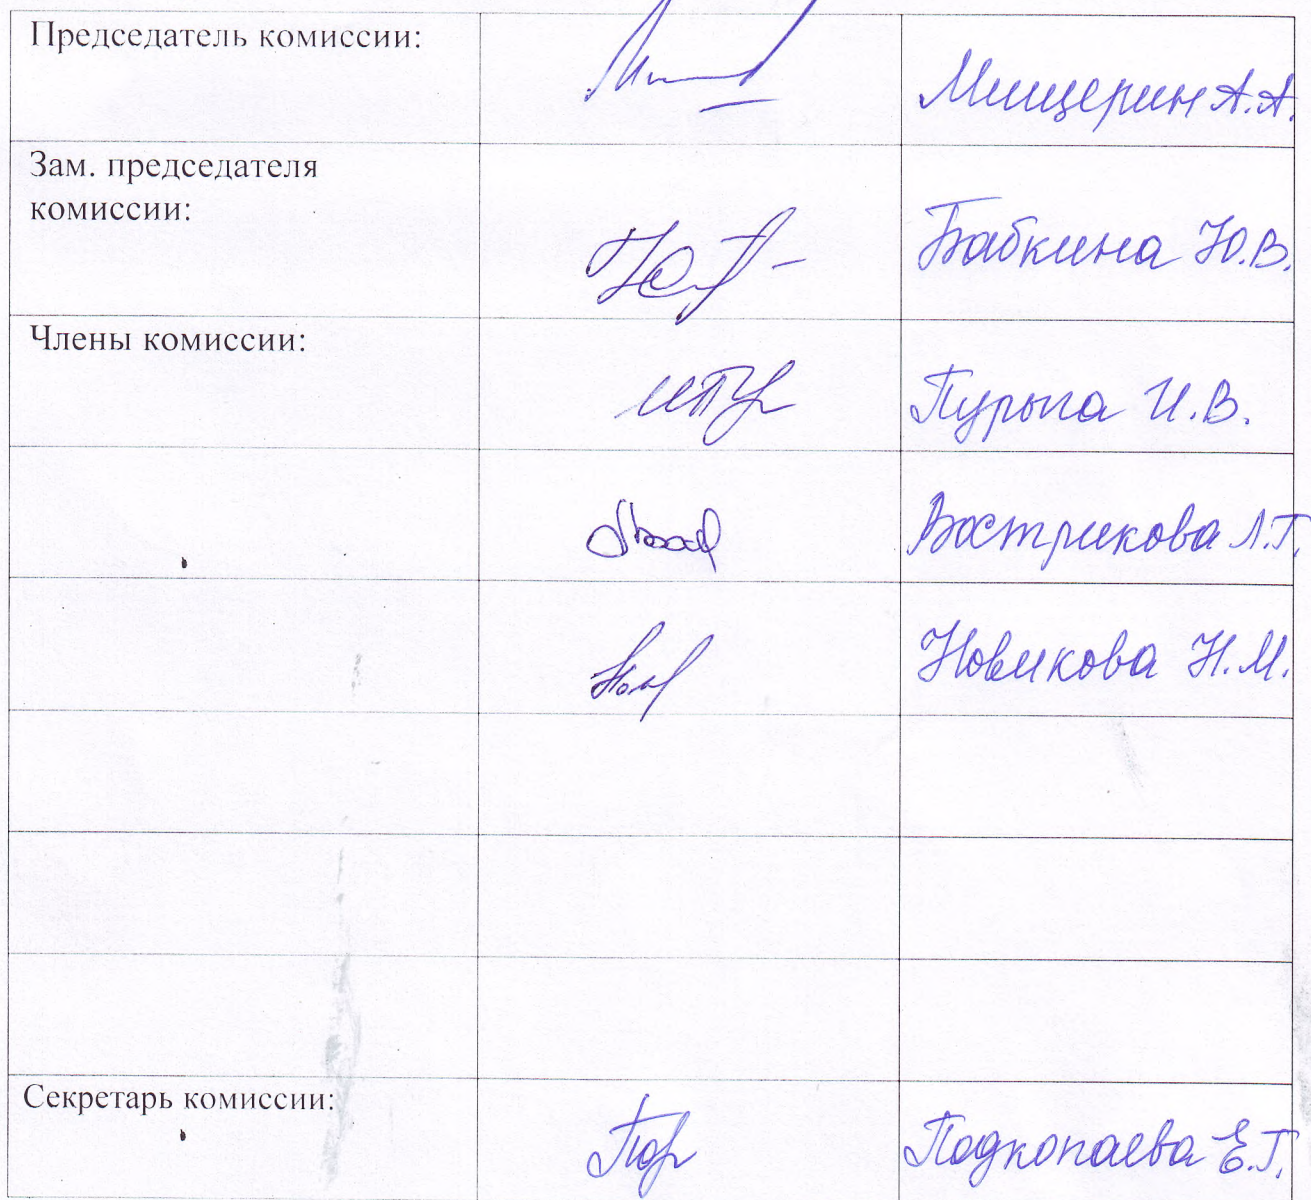 Председатель комиссии:
Мищерин А.А.
Зам. председателя
комиссии:
Бабкина Ю.В.
Члены комиссии:
Пурыга И.В.
Вострикова Л.Г.
Новикова Н.М.
Секретарь комиссии:
Подкопаева Е.Г.